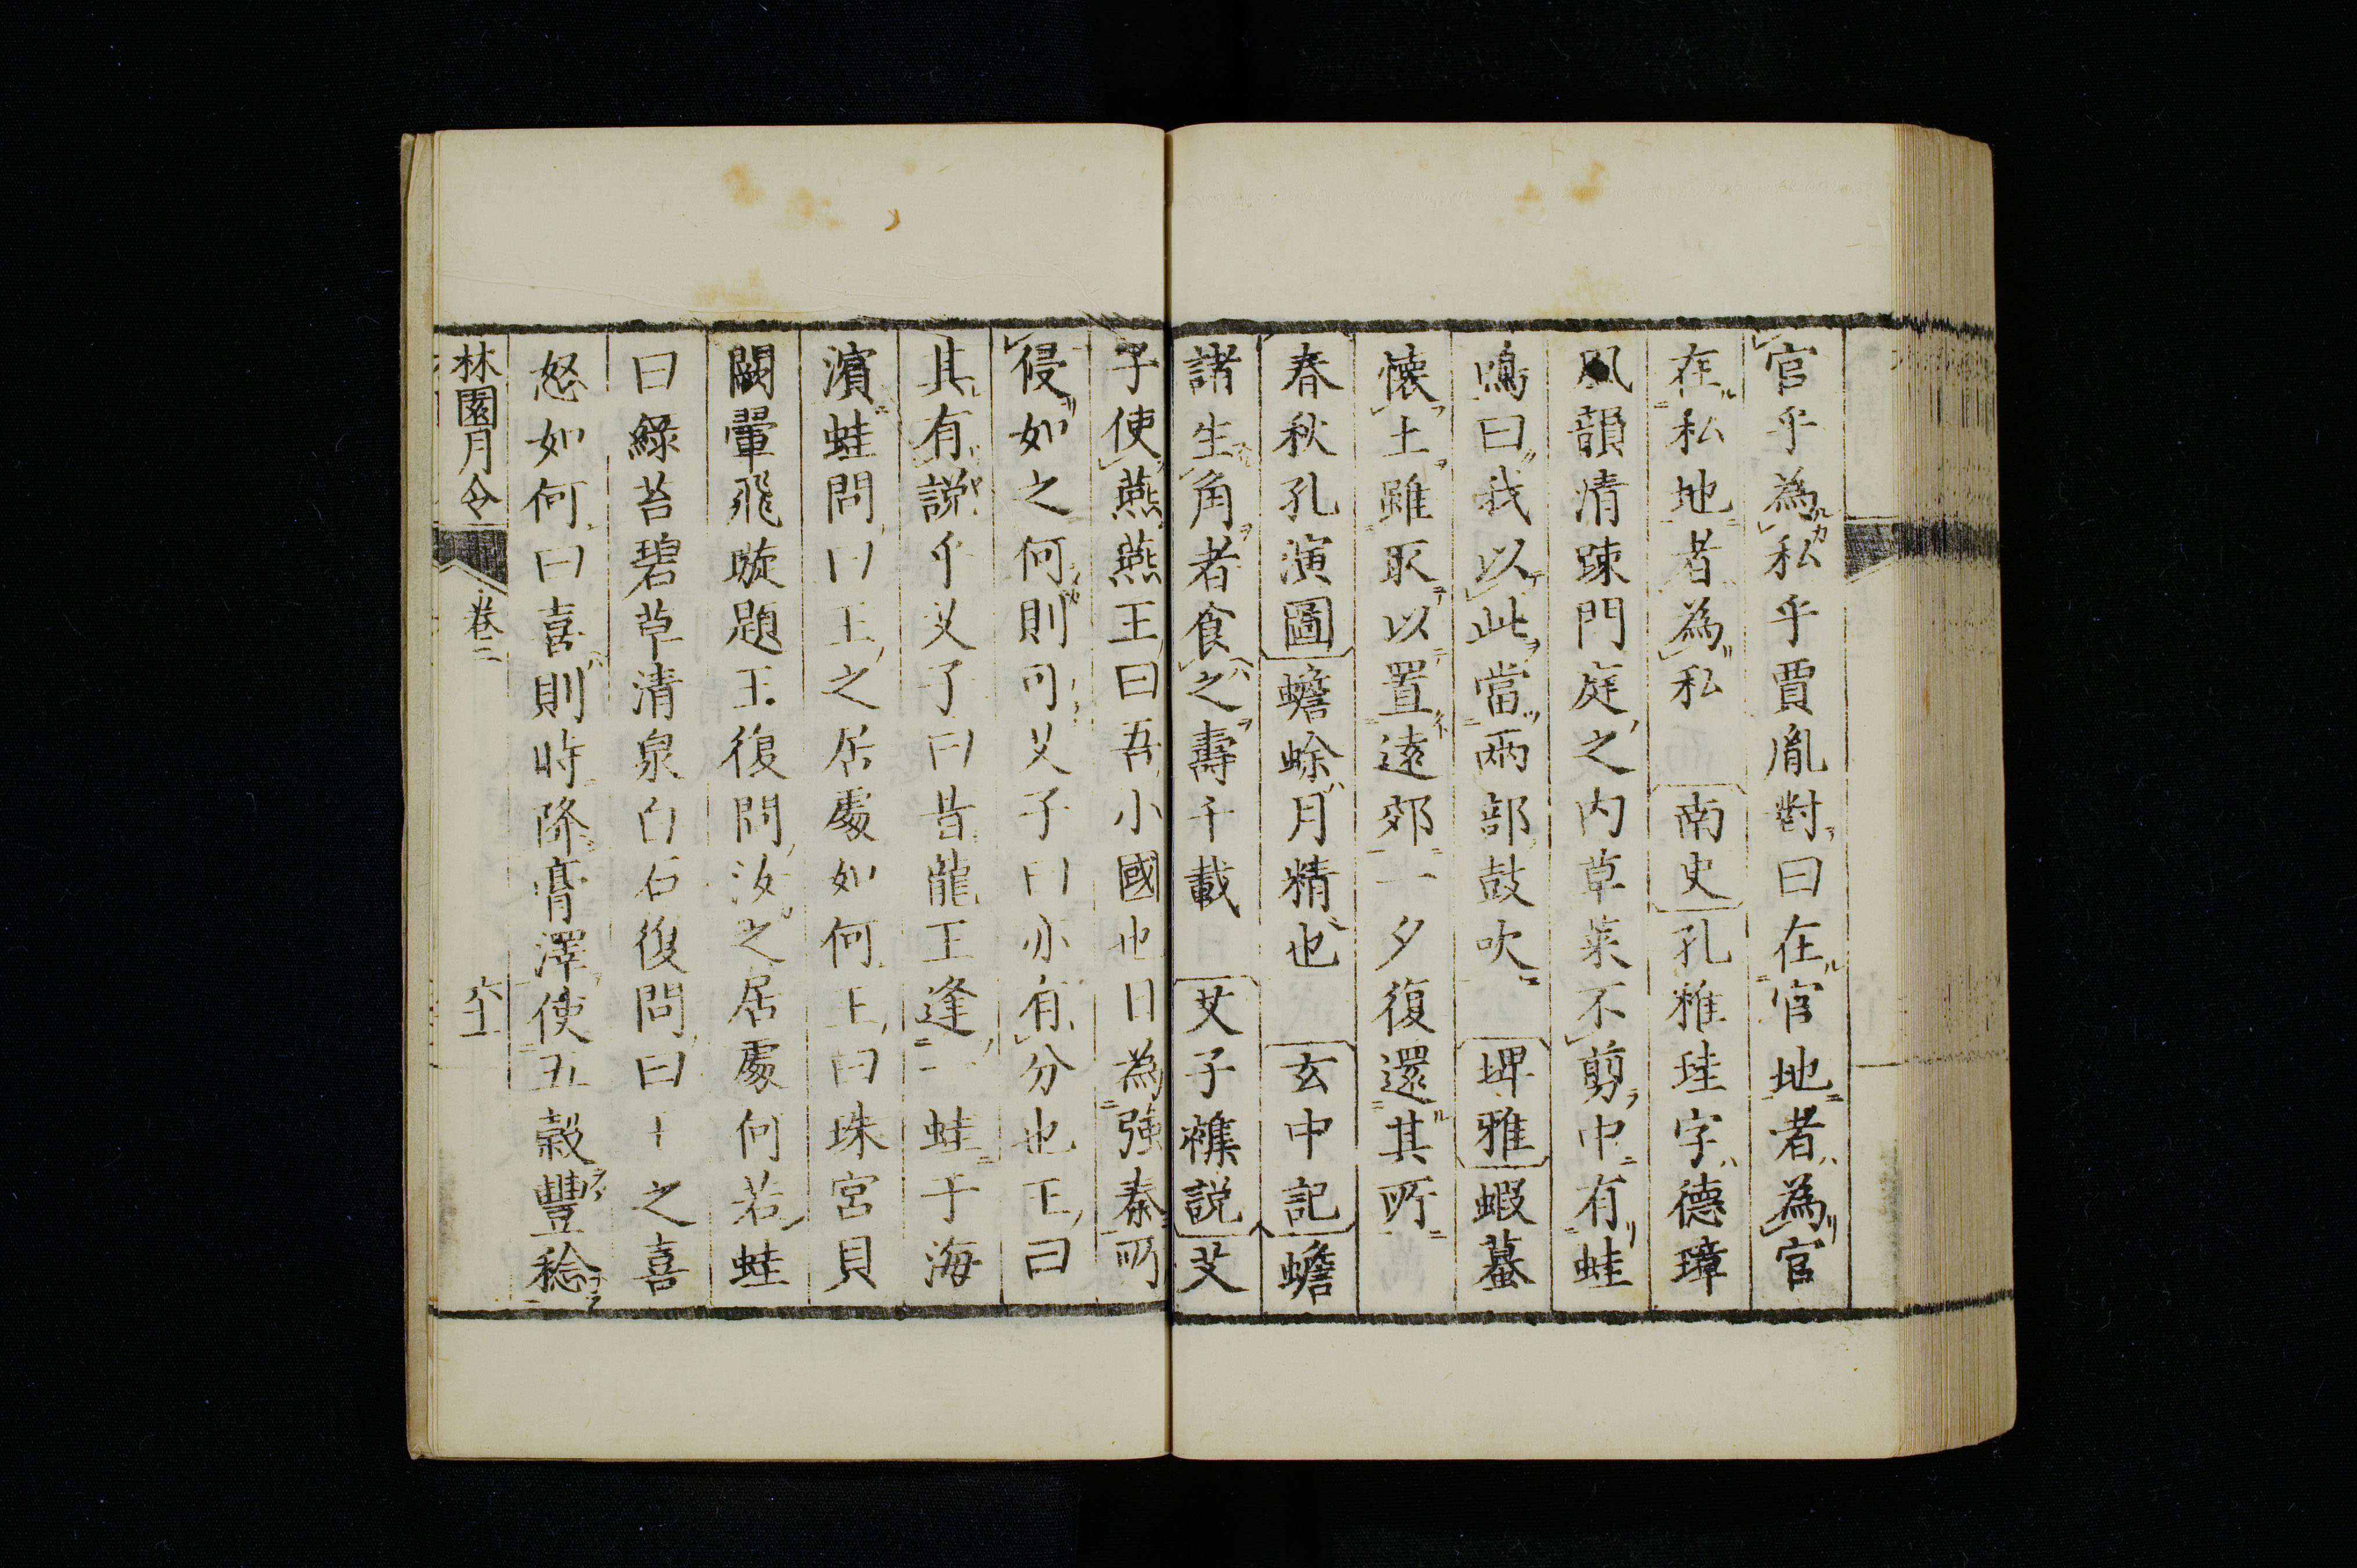 官乎為私乎賈胤對曰在官地者為官
在私地者為私　南史孔稚珪字德璋
風韻清疎門庭之内草萊不剪中有蛙
鳴曰我以此當兩部鼓吹　埤雅蝦蟇
懷土雖取以置遠郊一夕復還其所
春秋孔演圖蟾蜍月精也　玄中記蟾
諸生角者食之壽千載　艾子襍説艾
子使燕燕王曰吾小國也日為強秦所
侵如之何則可艾子曰亦有分也王曰
其有説乎艾子曰昔龍王逢一蛙于海
濱蛙問曰王之居處如何王曰珠宮貝
闕翬飛璇題王復問汝之居處何若蛙
曰綠苔碧草清泉白石復問曰王之喜
怒如何曰喜則時降膏澤使五穀豐稔
林園月令
卷二